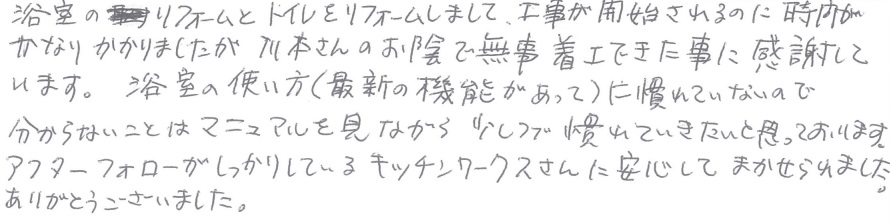 浴室のリフォームとトイレをリフォームしまして、工事が開始されるのに時間が
かなりかかりましたが川本さんのお陰で無事着工できた事に感謝して
います。浴室の使い方(最新の機能があって)に慣れていないので
分からないことはマニュアルを見ながら少しづつ慣れていきたいと思っております。
アフターフォローがしっかりしているキッチンワークスさんに安心してまかせられました。
ありがとうございました。